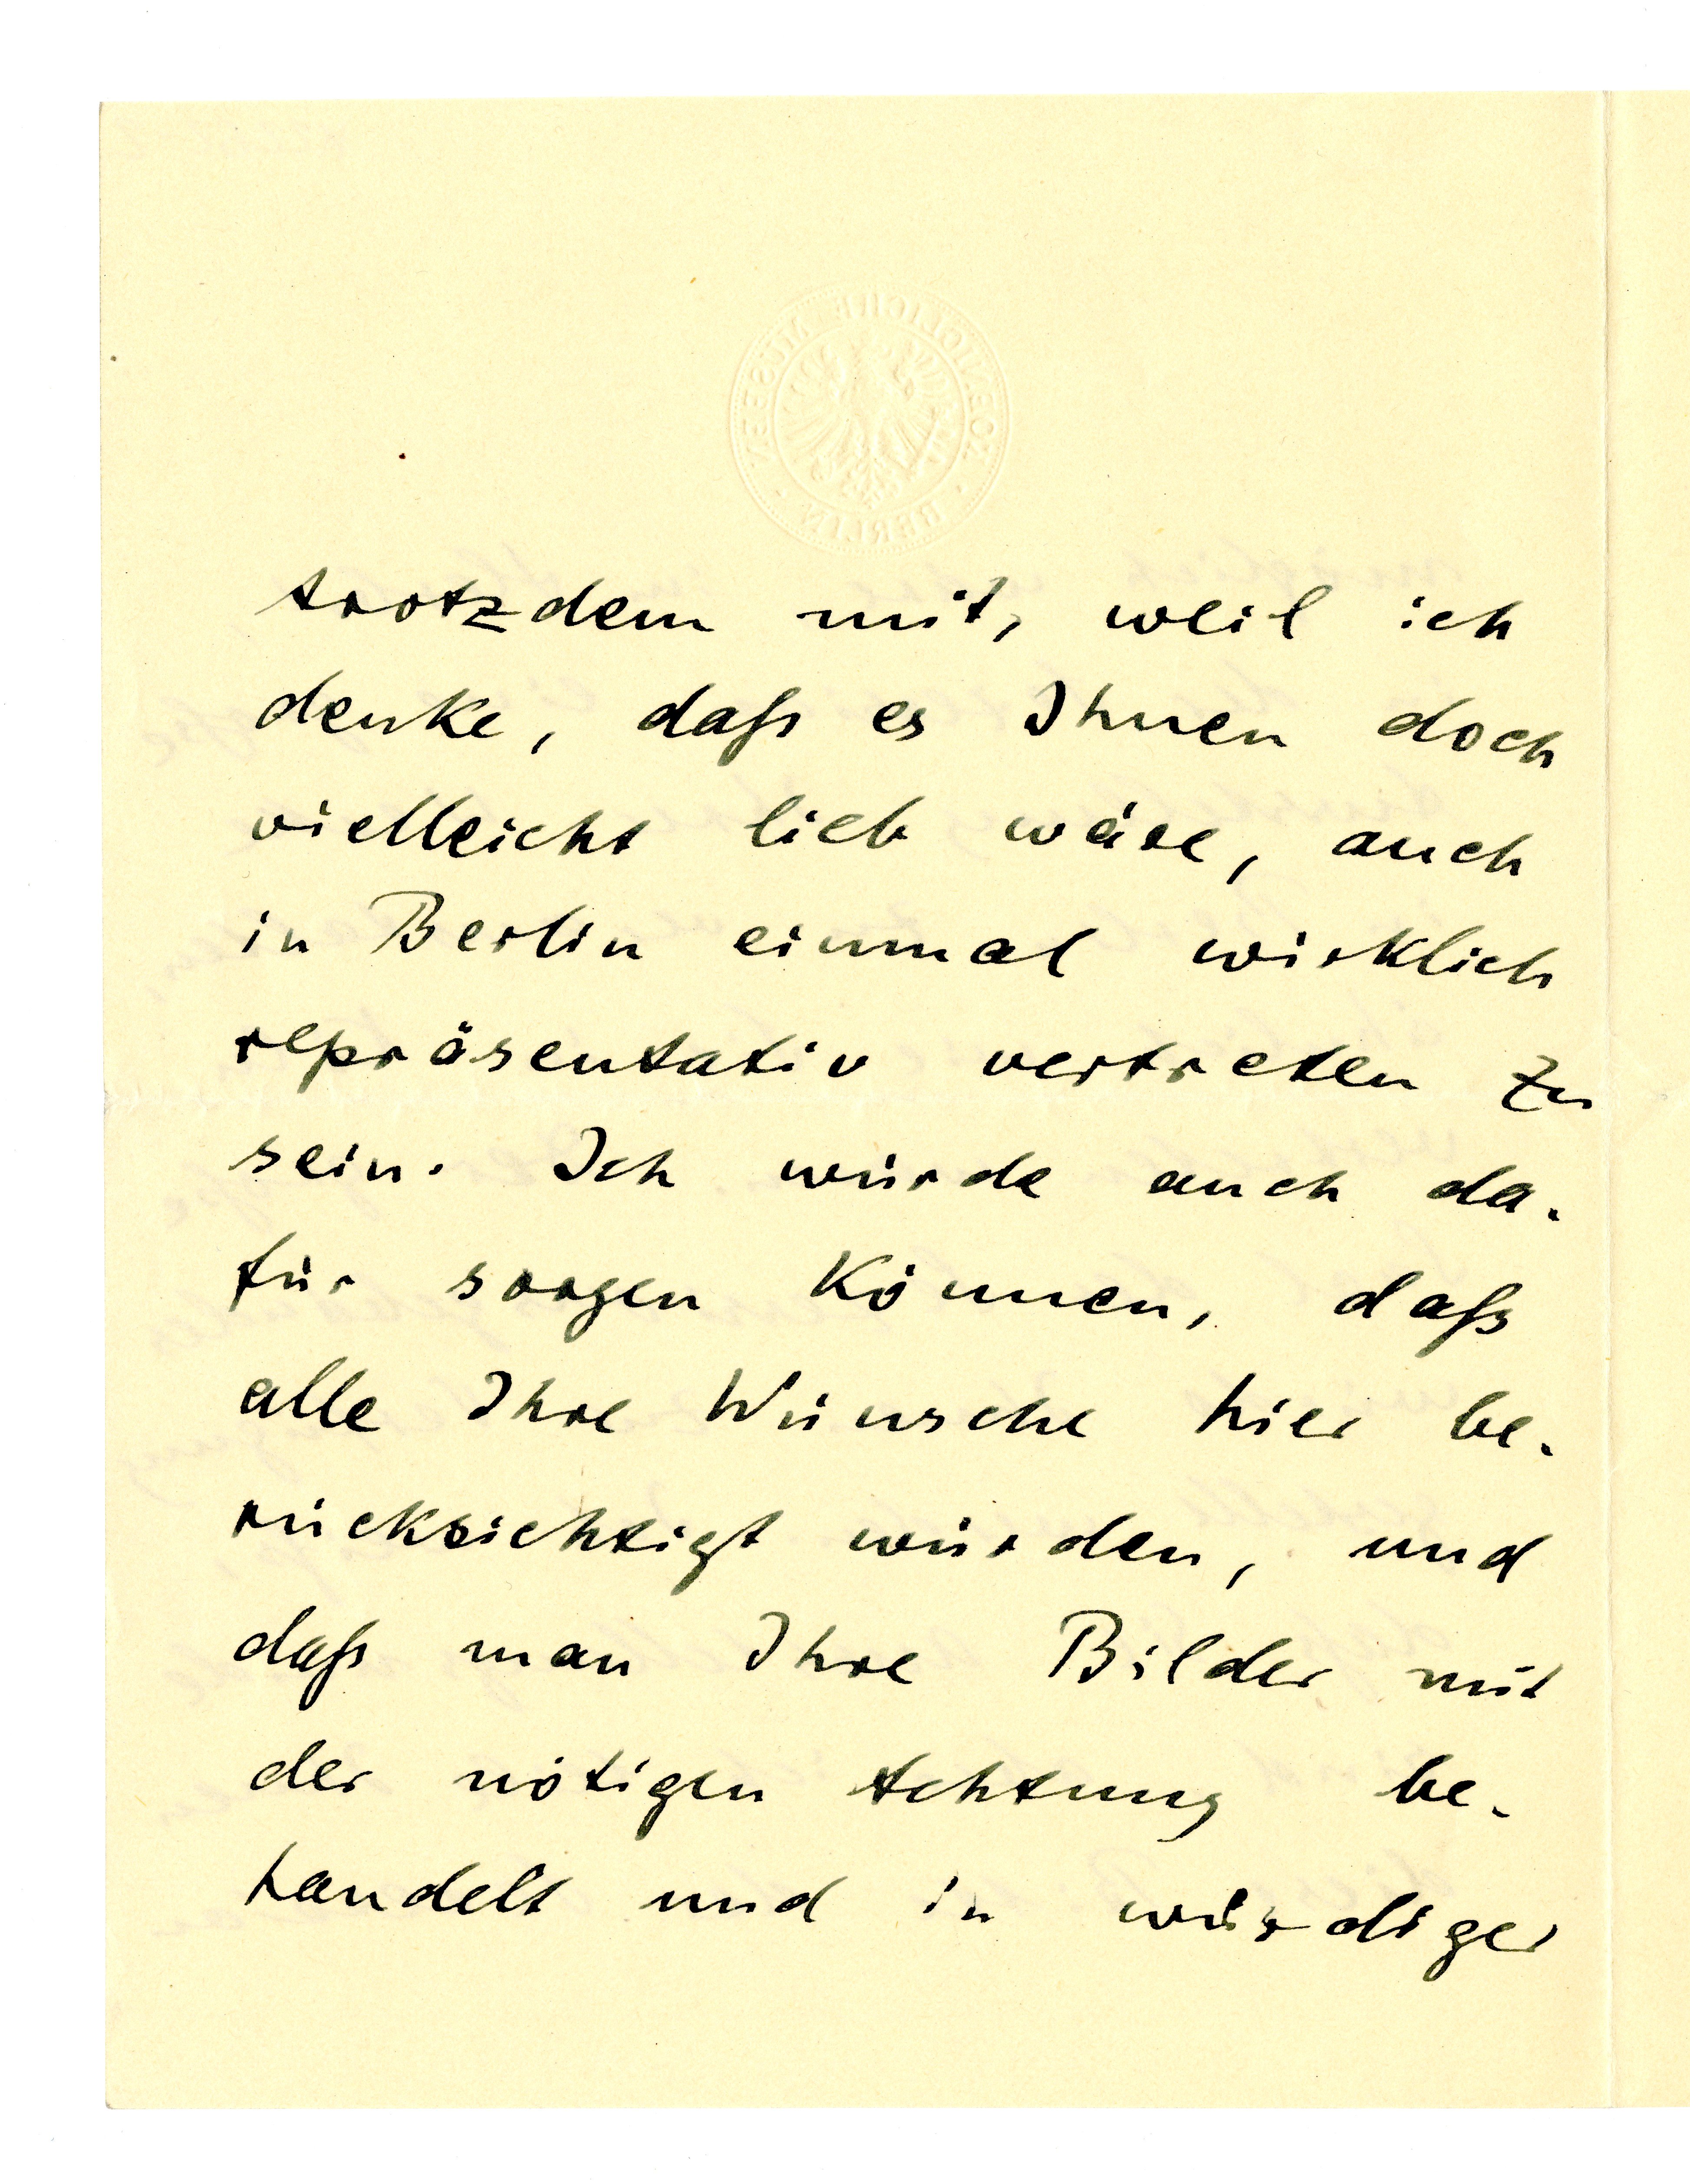 KOENIGLICHE MUSEEN
BERLIN
trotzdem mit, weil ich
denke, daß es Ihnen doch
vielleicht lieb wäre, auch
in Berlin einmal wirklich
repräsentativ vertreten zu
sein. Ich würde auch da-
für sorgen können, daß
alle Ihre Wünsche hier be-
rücksichtigt würden, und
daß man Ihre Bilder mit
der nötigen Achtung be-
handelt und in würdiger